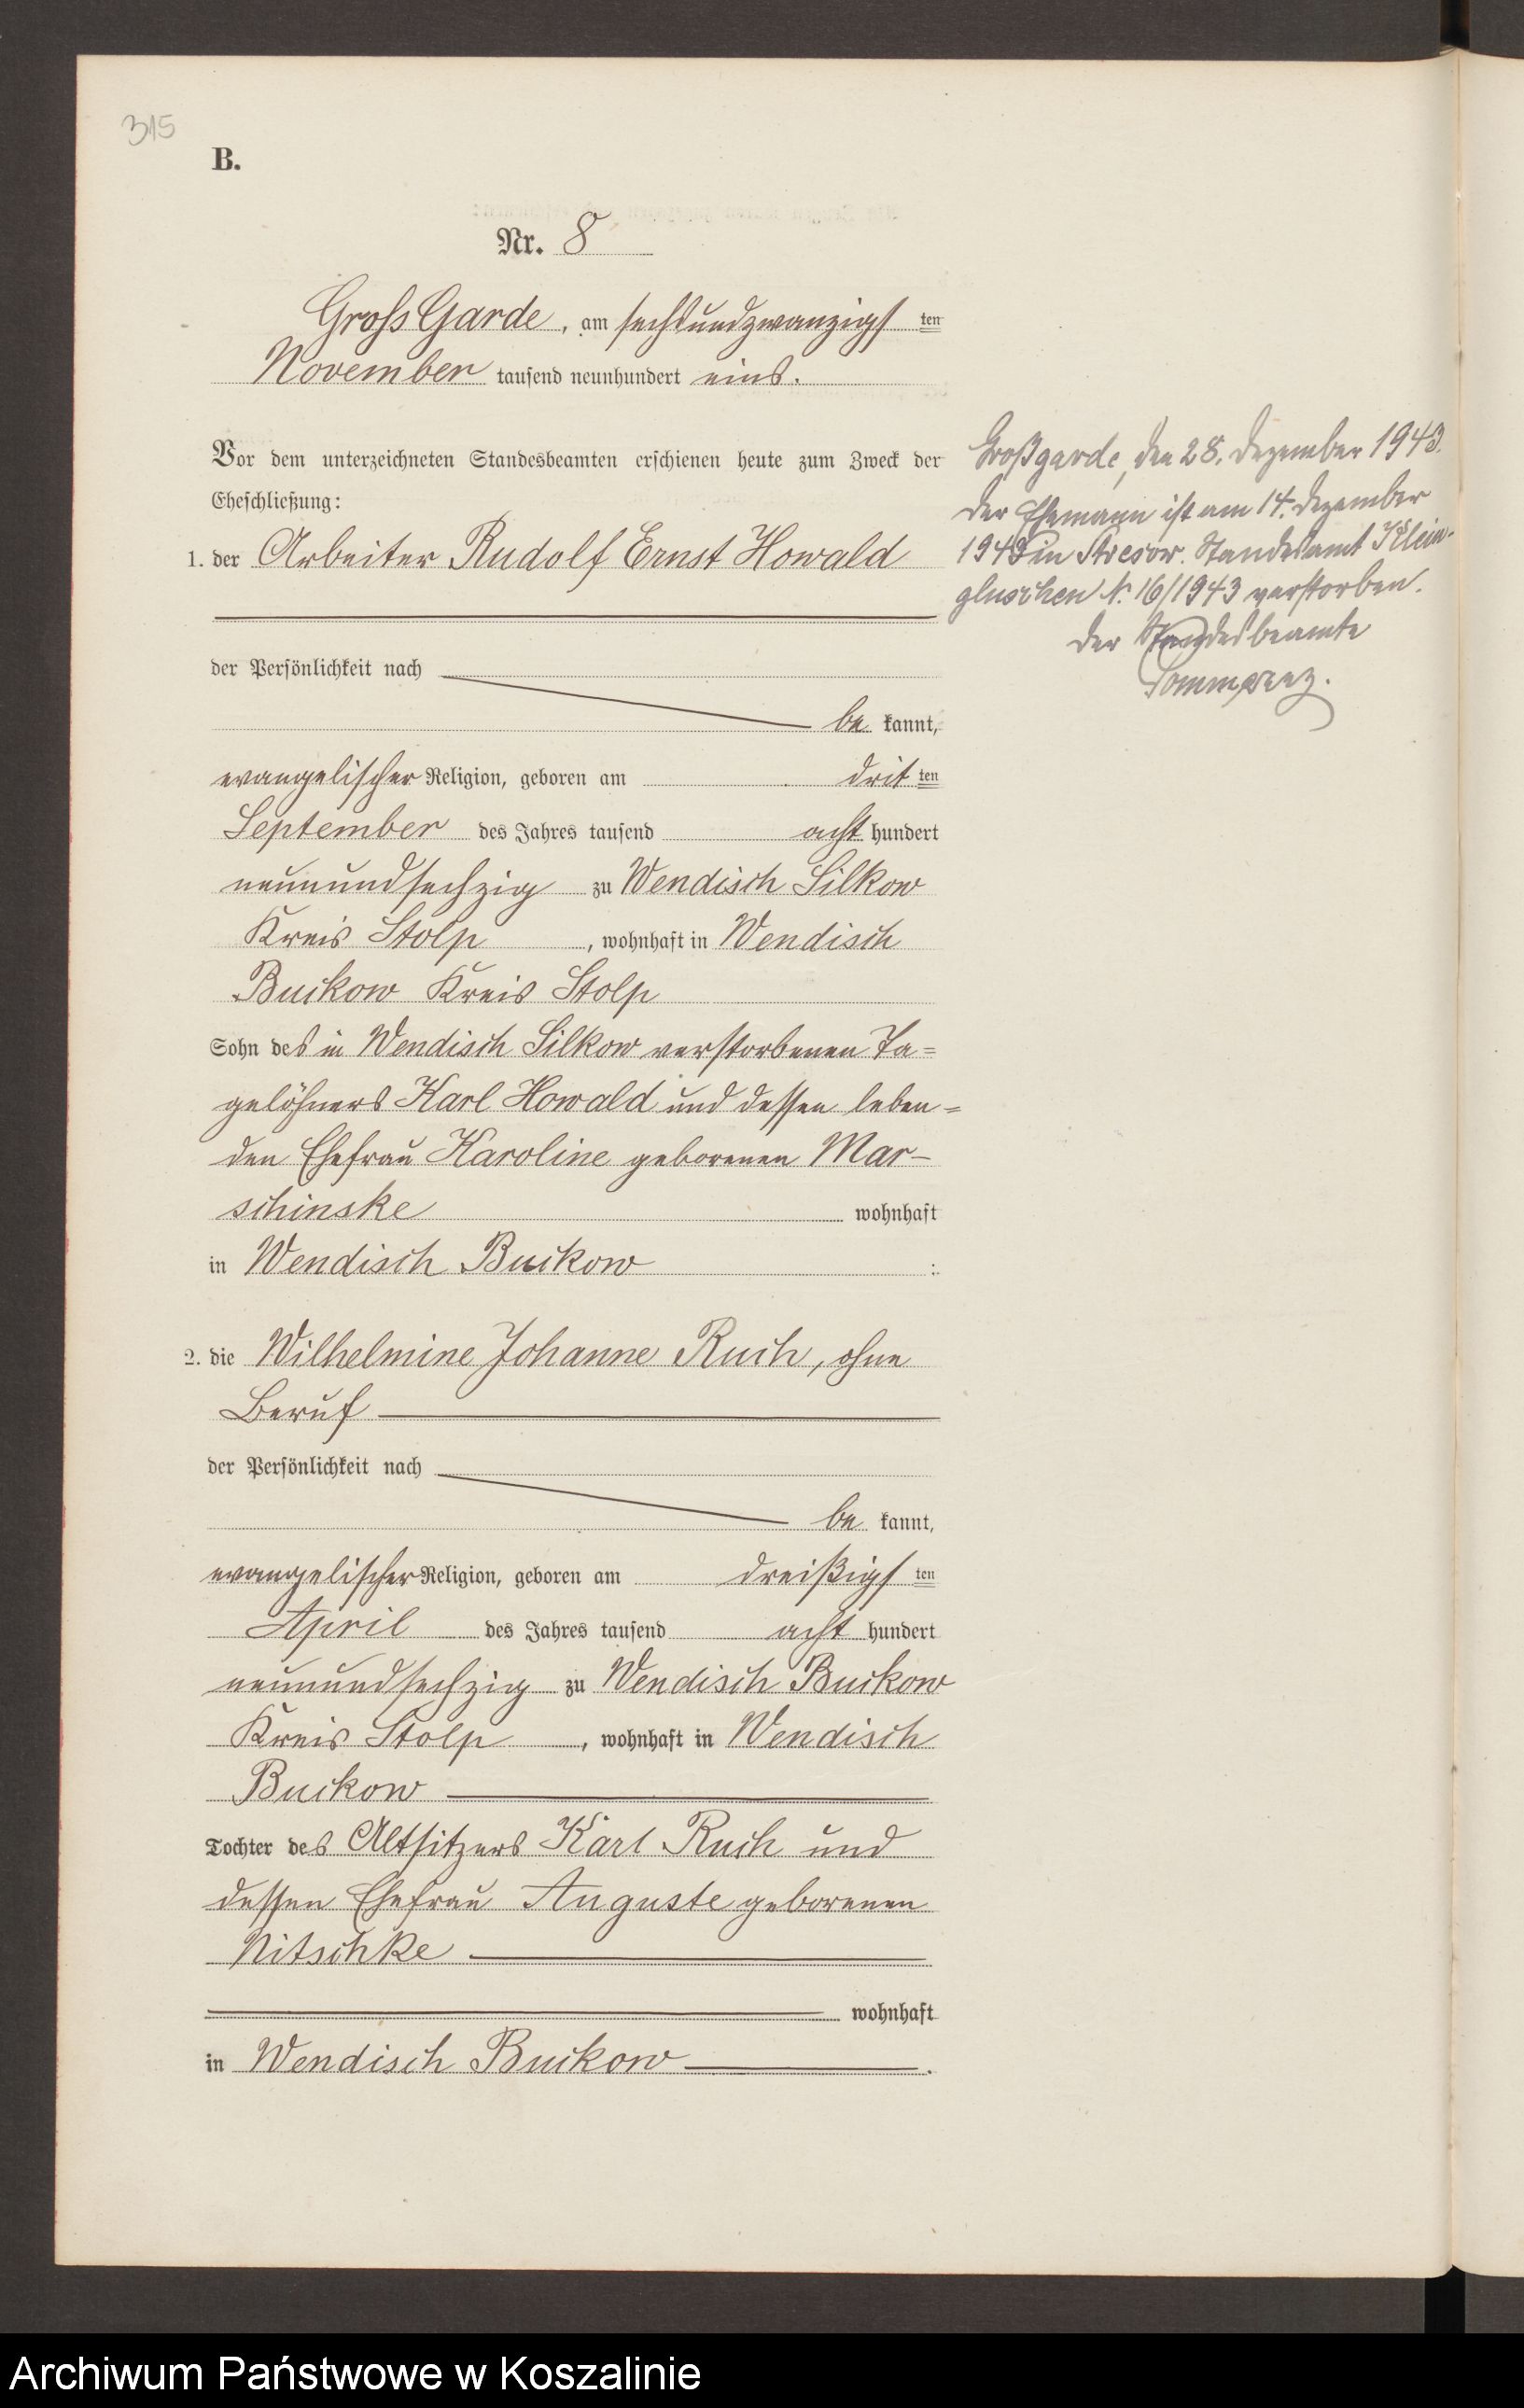 315
B.
Nr. 8
Gross Garde, am sechsundzwanzigsten
November tausend neunhundert eins.
Vor dem unterzeichneten Standesbeamten erschienen heute zum Zweck der
Eheschließung:
1. der Arbeiter Rudolf Ernst Howald
der Persönlichkeit nach
be kannt,
evangelischer Religion, geboren am dritten
September des Jahres tausend acht hundert
neunundsechzig zu Wendisch Silkow
Kreis Stolp, wohnhaft in Wendisch
Buckow Kreis Stolp
Sohn des in Wendisch Silkow verstorbenen Ta=
gelöhners Karl Howald und dessen leben=
den Ehefrau Karoline geborenen Mar-
schinske wohnhaft
in Wendisch Buckow :
2. die Wilhelmine Johanne Ruch, ohne
Beruf
der Persönlichkeit nach
be kannt,
evangelischer Religion, geboren am dreißigsten
April des Jahres tausend acht hundert
neunundsechzig zu Wendisch Buckow
Kreis Stolp, wohnhaft in Wendisch
Buckow
Tochter des Altsitzers Karl Ruch und
dessen Ehefrau Auguste geborenen
Nitschke
wohnhaft
in Wendisch Buckow.
Großgarde, den 28. Dezember 1943.
Der Ehemann ist am 14. Dezember
1943 in Stresow. Standesamt Klein-
gluschen Nr. 16/1943 verstorben.
Der Standesbeamte
Archiwum Państwowe w Koszalinie